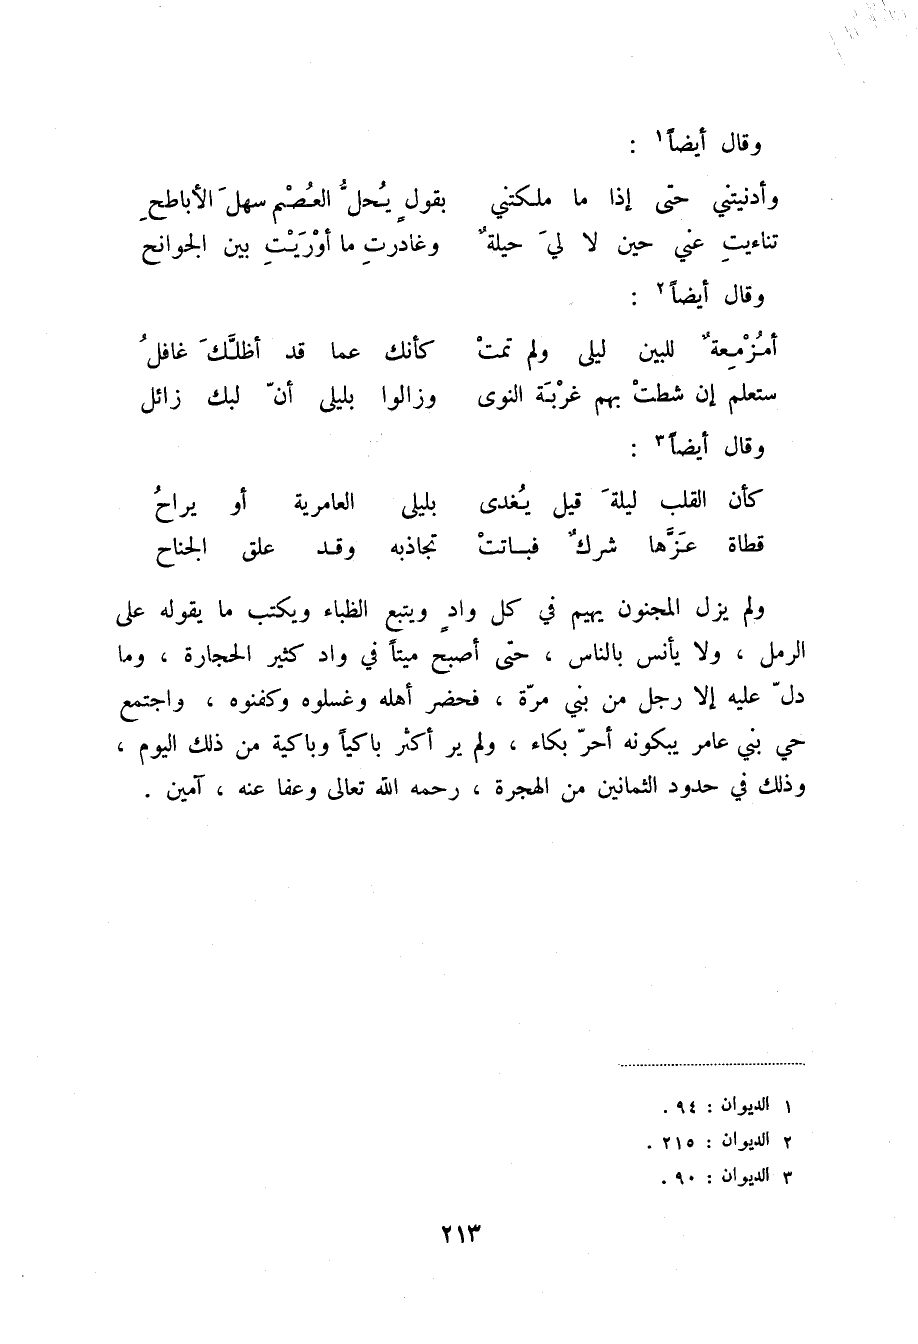 وقال أيضاً١ :
وأدنيتني حتّى إذا ما ملكتني بقولٍ يُحلُّ العُصْم سهلَ الأباطحِ
تناءيتِ عني حين لا ليَ حيلةٌ وغادرتِ ما أوْرَيْتِ بين الجوانح
وقال أيضاً٢ :
أمُزْمِعةٌ للبين ليلى ولم تمتْ كأنك عما قد أظلَّكَ غافلُ
ستعلم إن شطتْ بهم غرْبَة النوى وزالوا بليلى أنّ لبك زائل
وقال أيضاً٣ :
كأن القلب ليلةَ قيل يُغدى بليلى العامرية أو يراحُ
قطاة عَزَّها شركٌ فباتتْ تجاذبه وقد علق الجناح
ولم يزل المجنون يهيم في كل وادٍ ويتبع الظباء ويكتب ما يقوله على
الرمل ، ولا يأنس بالناس ، حتّى أصبح ميتاً في واد كثير الحجارة ، وما
دلّ عليه إلا رجل من بني مرّة ، فحضر أهله وغسلوه وكفنوه ، واجتمع
حي بني عامر يبكونه أحرّ بكاء ، ولم ير أكثر باكياً وباكية من ذلك اليوم ،
وذلك في حدود الثمانين من الهجرة ، رحمه الله تعالى وعفا عنه ، آمين .
١ الديوان : ٩٤ .
٢ الديوان : ٢١٥ .
٣ الديوان : ٩٠ .
٢١٣